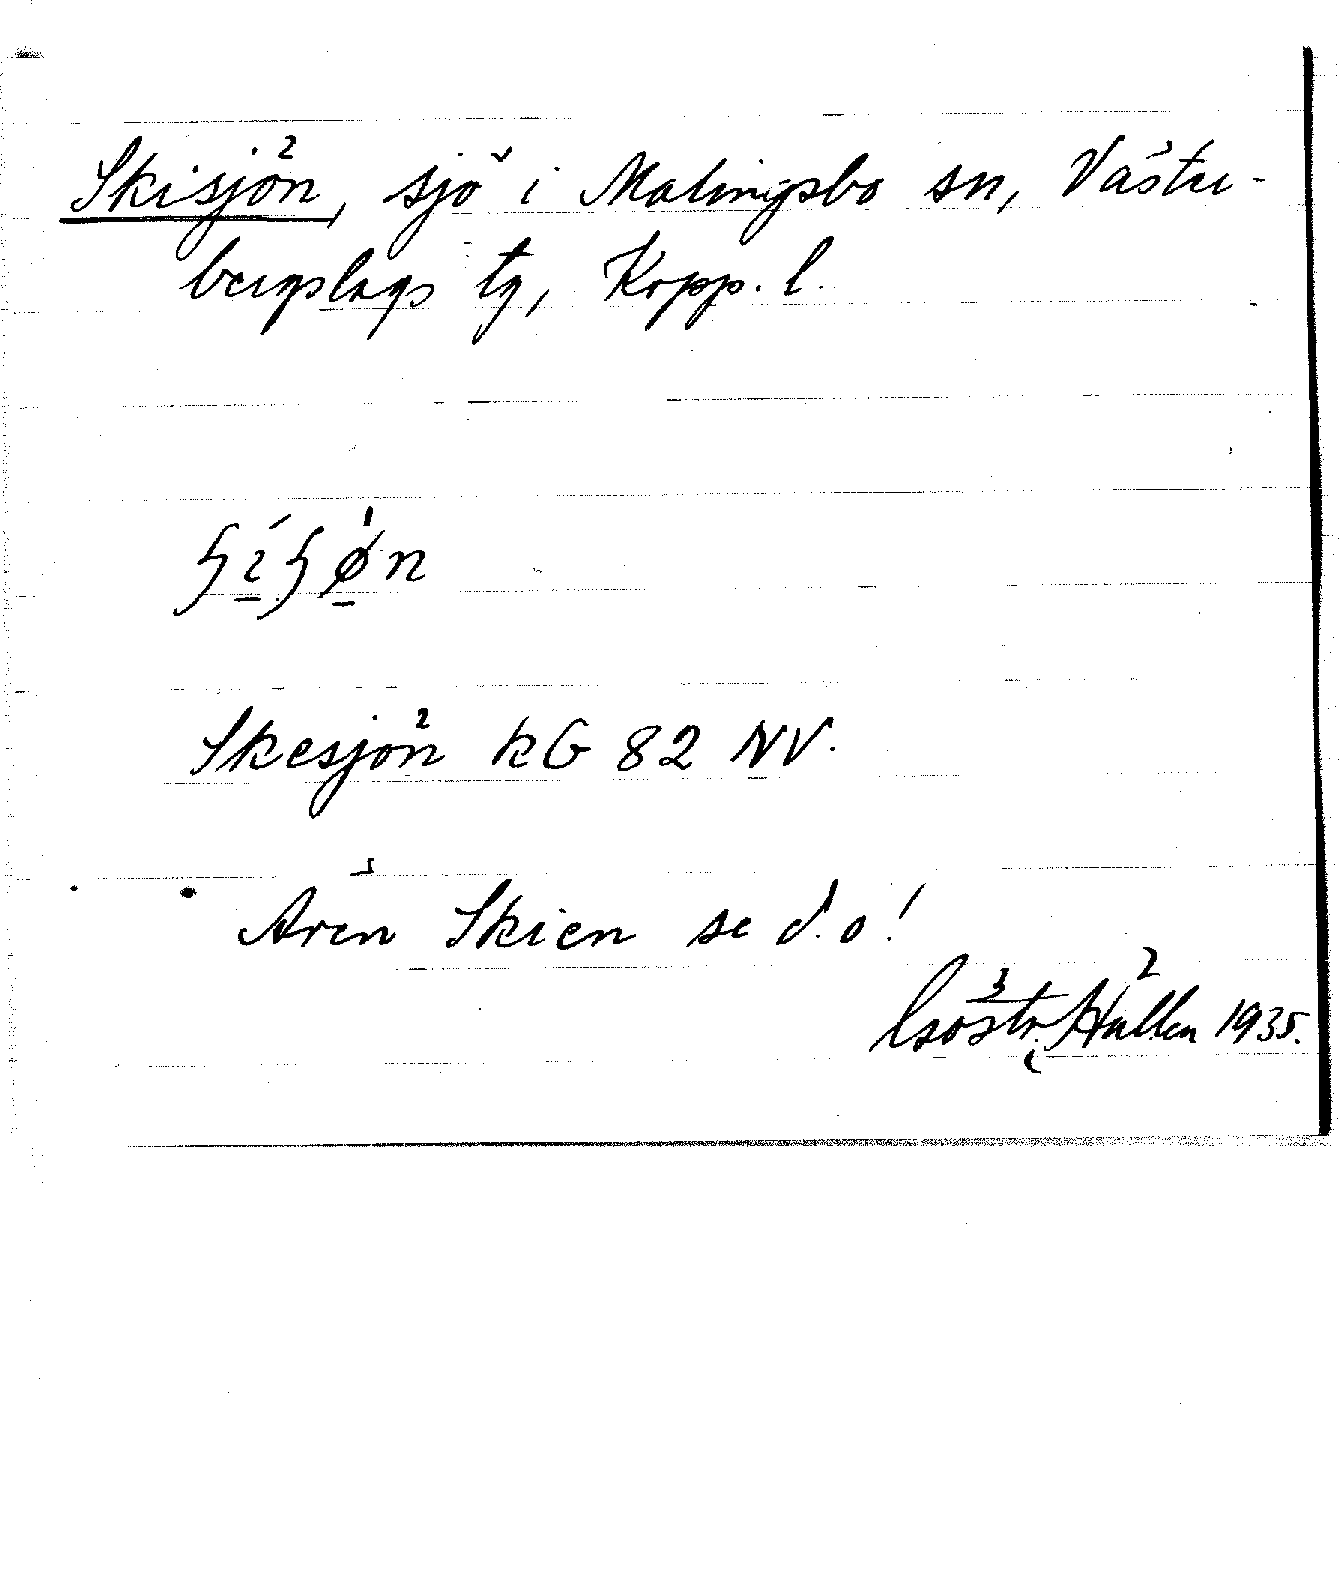 Skisjön, sjö i Malingsbo sn, Väster-
bergslags tg, Kopp. l.
Skesjön kG 82 NV.
Åren Skien se d. o!
Hallen 1935.